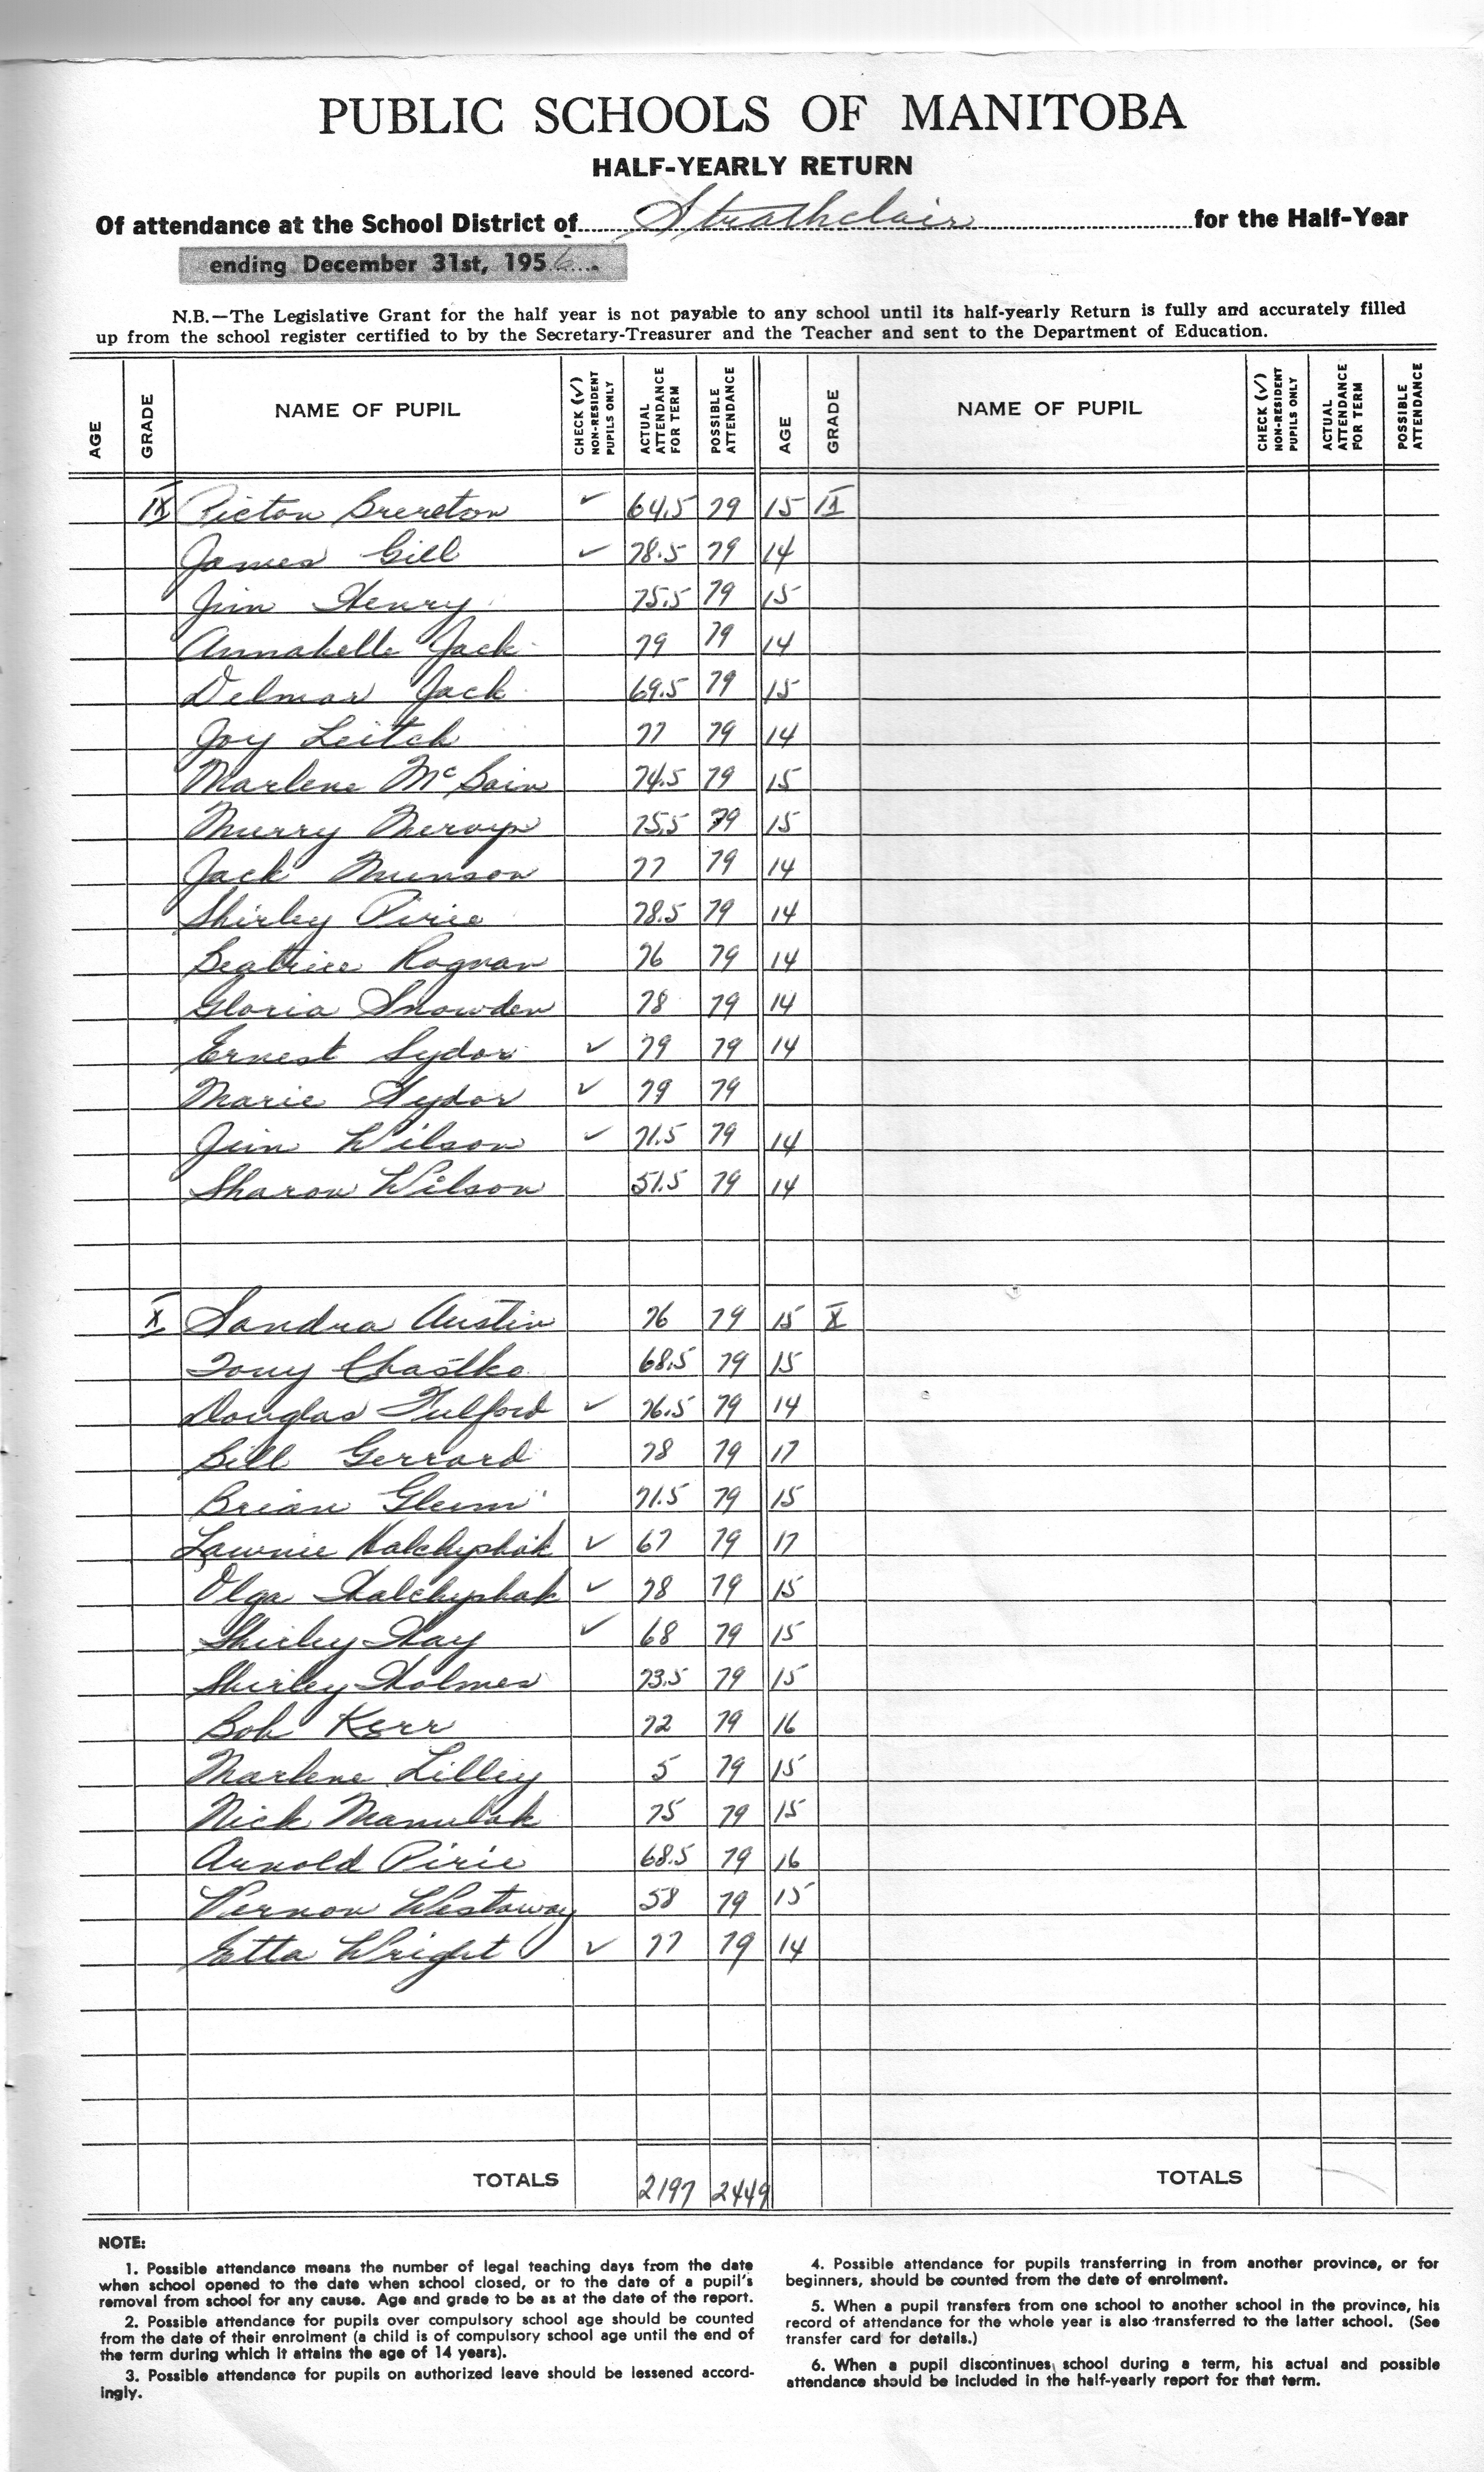 PUBLIC SCHOOLS OF MANITOBA
HALF-YEARLY RETURN
Of attendance at the School District of Strathclair for the Half-Year
ending December 31st, 1956.
N.B.—The Legislative Grant for the half year is not payable to any school until its half-yearly Return is fully and accurately filled
up from the school register certified to by the Secretary-Treasurer and the Teacher and sent to the Department of Education.
AGE GRADE NAME OF PUPIL CHECK (✓) NON-RESIDENT PUPILS ONLY ACTUAL ATTENDANCE FOR TERM POSSIBLE ATTENDANCE AGE GRADE NAME OF PUPIL CHECK (✓) NON-RESIDENT PUPILS ONLY ACTUAL ATTENDANCE FOR TERM POSSIBLE ATTENDANCE
IX Picton Brereton ✓ 64.5 79 15 IX
James Gill ✓ 78.5 79 14
Jim Henry 75.5 79 15
Annabelle Jack 79 79 14
Delmar Jack 69.5 79 15
Joy Leitch 77 79 14
Marlene McBain 74.5 79 15
Murry Mervyn 75.5 79 15
Jack Munson 77 79 14
Shirley Pirie 78.5 79 14
Beatrice Rognan 76 79 14
Gloria Snowden 78 79 14
Ernest Sydor ✓ 79 79 14
Marie Sydor ✓ 79 79
Jim Wilson ✓ 71.5 79 14
Sharon Wilson 51.5 79 14
X Sandra Austin 76 79 15 X
Tony Chastko 68.5 79 15
Douglas Fulford ✓ 76.5 79 14
Bill Gerrard 78 79 17
Brian 71.5 79 15
Lawnie ✓ 67 79 17
Olga ✓ 78 79 15
Shirley Hay ✓ 68 79 15
Shirley Holmes 73.5 79 15
Bob Kerr 72 79 16
Marlene Lilley 5 79 15
Nick Manulak 75 79 15
Arnold Pirie 68.5 79 16
Vernon Westaway 58 79 15
Etta Wright ✓ 77 79 14
TOTALS 2197 2449 TOTALS
NOTE:
1. Possible attendance means the number of legal teaching days from the date
when school opened to the date when school closed, or to the date of a pupil's
removal from school for any cause. Age and grade to be as at the date of the report.
2. Possible attendance for pupils over compulsory school age should be counted
from the date of their enrolment (a child is of compulsory school age until the end of
the term during which it attains the age of 14 years).
3. Possible attendance for pupils on authorized leave should be lessened accord-
ingly.
4. Possible attendance for pupils transferring in from another province, or for
beginners, should be counted from the date of enrolment.
5. When a pupil transfers from one school to another school in the province, his
record of attendance for the whole year is also transferred to the latter school. (See
transfer card for details.)
6. When a pupil discontinues school during a term, his actual and possible
attendance should be included in the half-yearly report for that term.